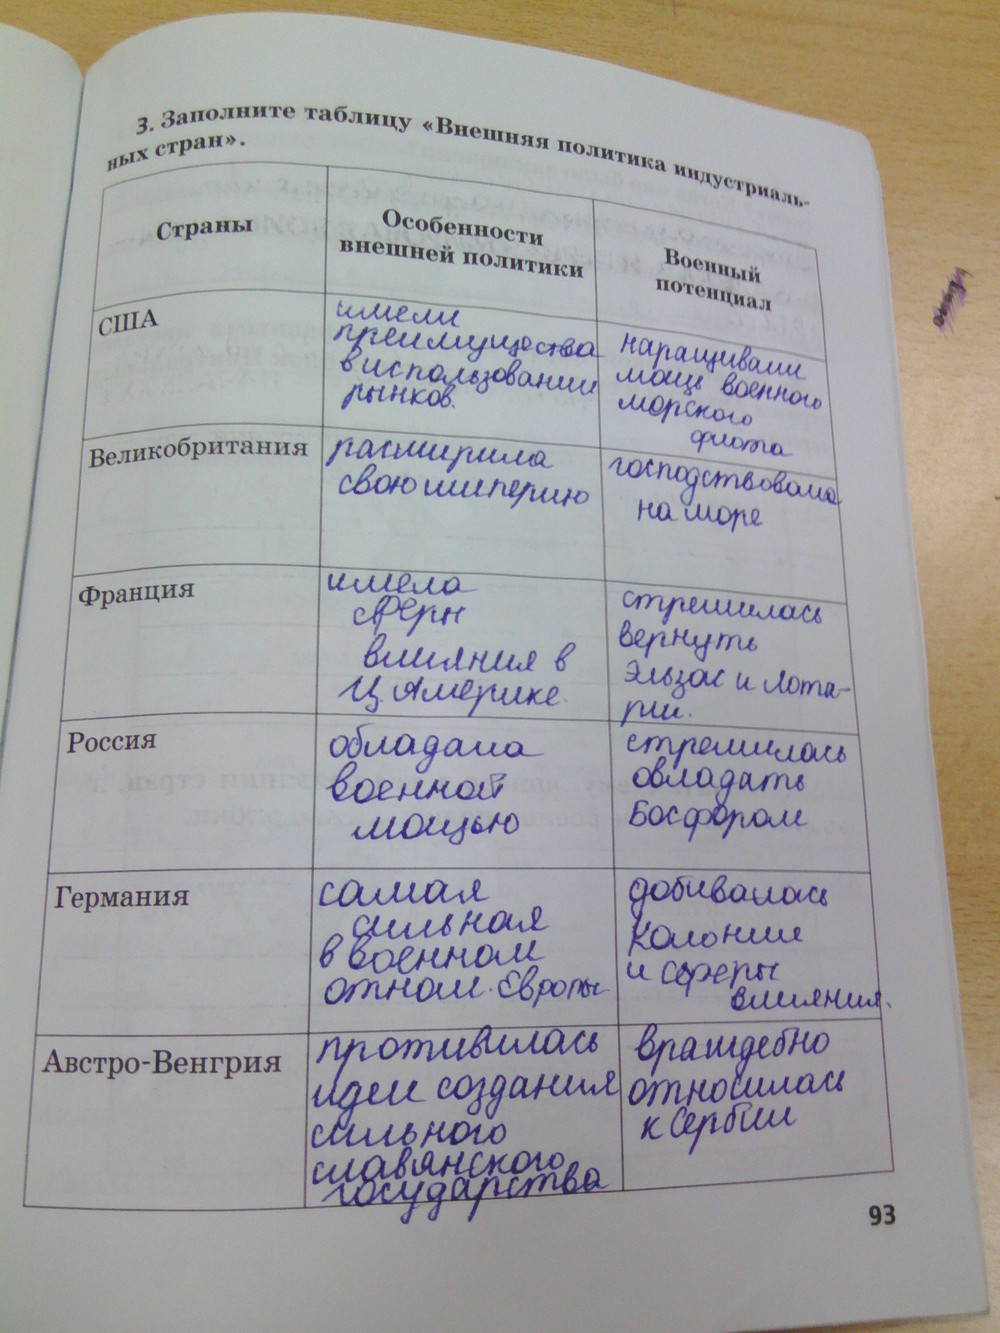 3. Заполните таблицу «Внешняя политика индустриаль-
ных стран».
Страны
Особенности
внешней политики
Военный
потенциал
США
имели
преимущества
в использовании
рынков.
наращивали
мощь военного
морского
флота
Великобритания
расширила
свою империю
господствовала
на море
Франция
имела
сферы
влияния в
Ц. Америке.
стремилась
вернуть
Эльзас и Лота-
рии.
Россия
обладала
военной
мощью
стремилась
овладать
Босфором
Германия
самая
сильная
в военном
отном. Европы
добивалась
колонии
и сферы
влияния.
Австро-Венгрия
противилась
идеи создания
сильного
славянского
государства
враждебно
относилась
к Сербии
93